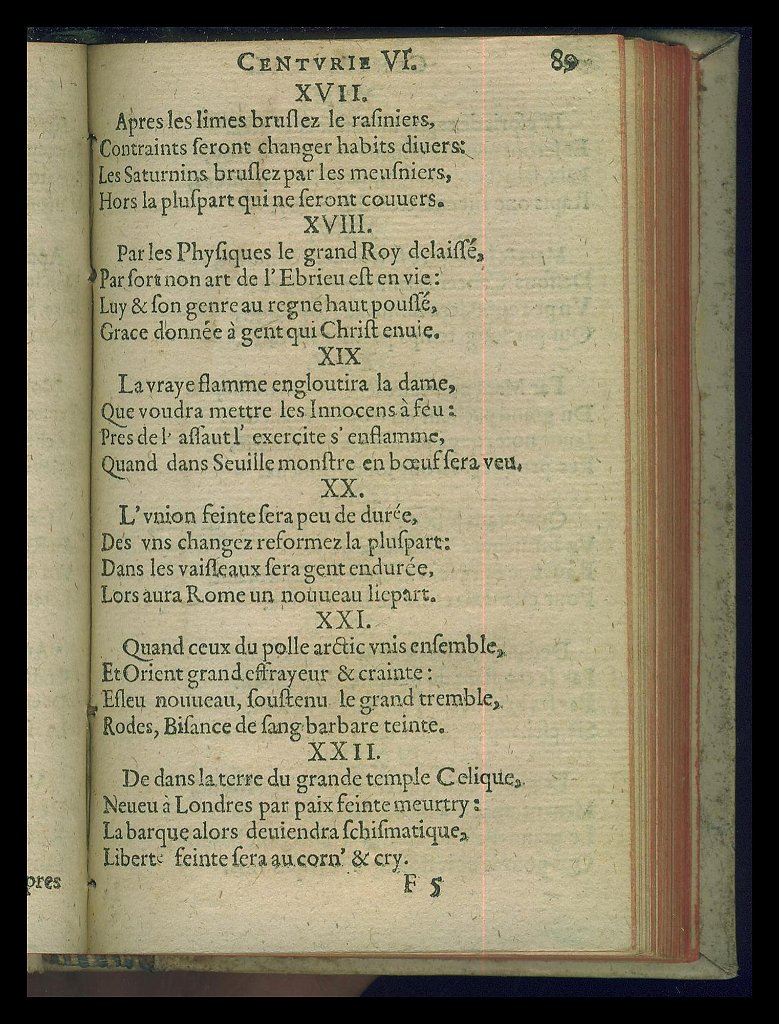 CENTVRIE VI. 89
XVII.
Apres les limes bruſlez le raſiniers,
Contraints ſeront changer habits diuers:
Les Saturnins bruſlez par les meuſniers,
Hors la pluſpart qui ne ſeront couuers.
XVIII.
Par les Phyſiques le grand Roy delaiſſé,
Par ſort non art de l'Ebrieu eſt en vie:
Luy & ſon genre au regne haut pouſſé,
Grace donnée à gent qui Chriſt enuie.
XIX
La vraye flamme engloutira la dame,
Que voudra mettre les Innocens à feu:
Pres de l' aſſaut l' exercite s' enflamme,
Quand dans Seuille monſtre en bœuf ſera veu.
XX.
L'vnion feinte ſera peu de durée,
Des vns changez reformez la pluſpart:
Dans les vaiſſeaux ſera gent endurée,
Lors aura Rome un nouueau liepart.
XXI.
Quand ceux du polle arctic vnis enſemble,
Et Orient grand effrayeur & crainte:
Eſleu nouueau, ſouſtenu le grand tremble,
Rodes, Biſance de ſang barbare teinte.
XXII.
De dans la terre du grande temple Celique,
Neueu à Londres par paix feinte meurtry:
La barque alors deuiendra ſchiſmatique,
Liberté feinte ſera au corn' & cry.
F 5
pres